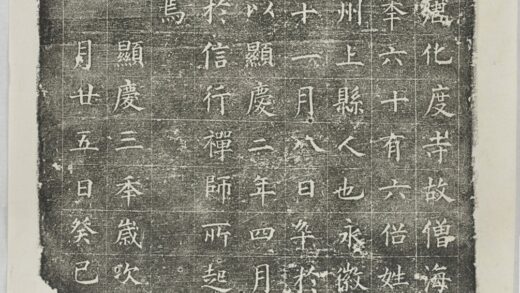 化度寺故僧海
秊六十有六俗姓
州上縣人也永徽
十一月八日卒於
以顯慶二年四月
於信行禪師所起
焉
顯慶三秊歲次
月廿五日癸巳